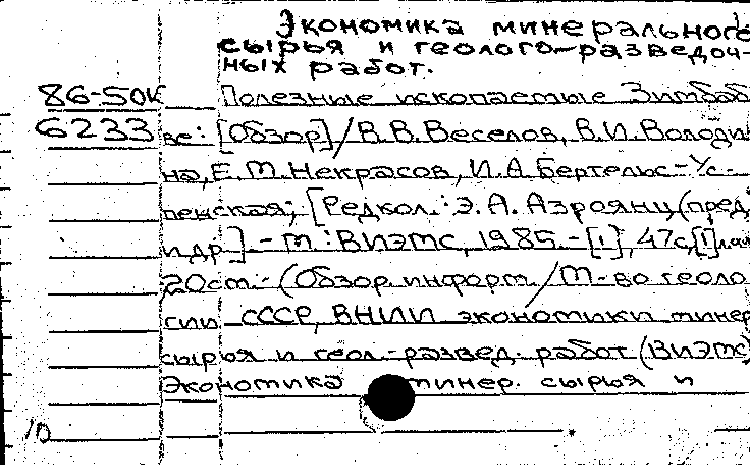 Экономика минерального
сырья и геолого-разведоч-
ных работ.
86-50К Полезные ископаемые Зимбаб
6233 ве: [Обзор]/В.В.Веселов, В.И.Володи
на, Е.М.Некрасов, И.А.Бертельс-Ус-
пенская; [Редкол.: Э.А.Азроянц (пред.)
и др.]. - М.: ВИЭМС, 1985. - [1], 47с, [1]
20см. - (Обзор. информ./М-во геоло
гии СССР, ВНИИ экономики минер
сырья и геол.-развед. работ (ВИЭМС)
Экономика минер. сырья и
10